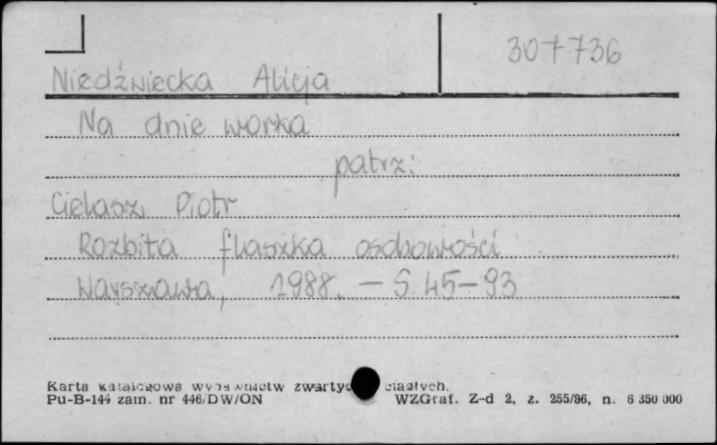 307736
Niedźwiecka Alicja
Na dnie worka
patrz:
Cielasz Piotr
Rozbita flaszka osobowości
Warszawa, 1988. – S. 45–93
Karta katalogowa wydawnictw zwartych ciągłych.
Pu-B-144 zam. nr 446/DW/ON WZGraf. Z-d 2, z. 255/86, n. 6 350 000